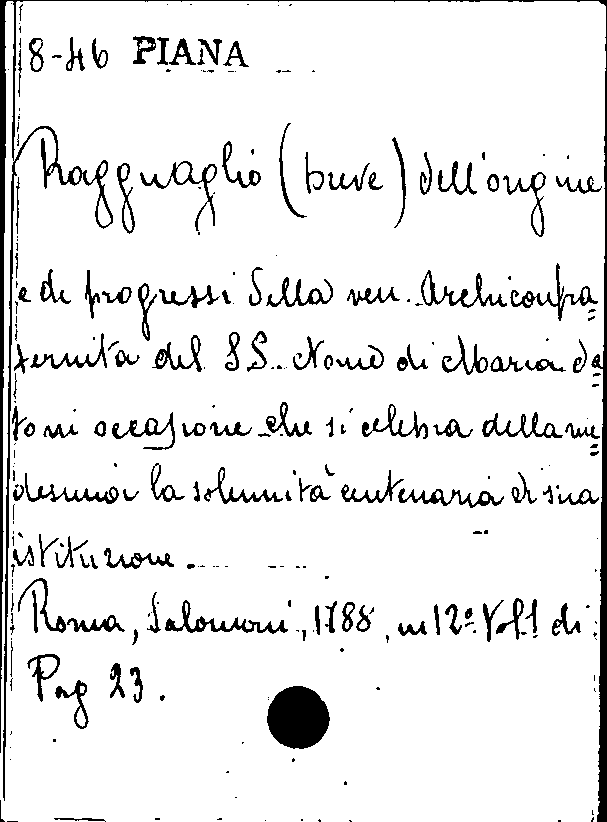 8-46 PIANA
Ragguaglio (breve) dell'origine
e di progressi della ven. Archiconfra=
ternita del SS. Nome di Maria da=
to in occasione che si celebra della me=
desima la solennità centenaria di sua
istituzione.
Roma, Salomoni, 1788, in 12º Vol. 1 di
Pag 23.